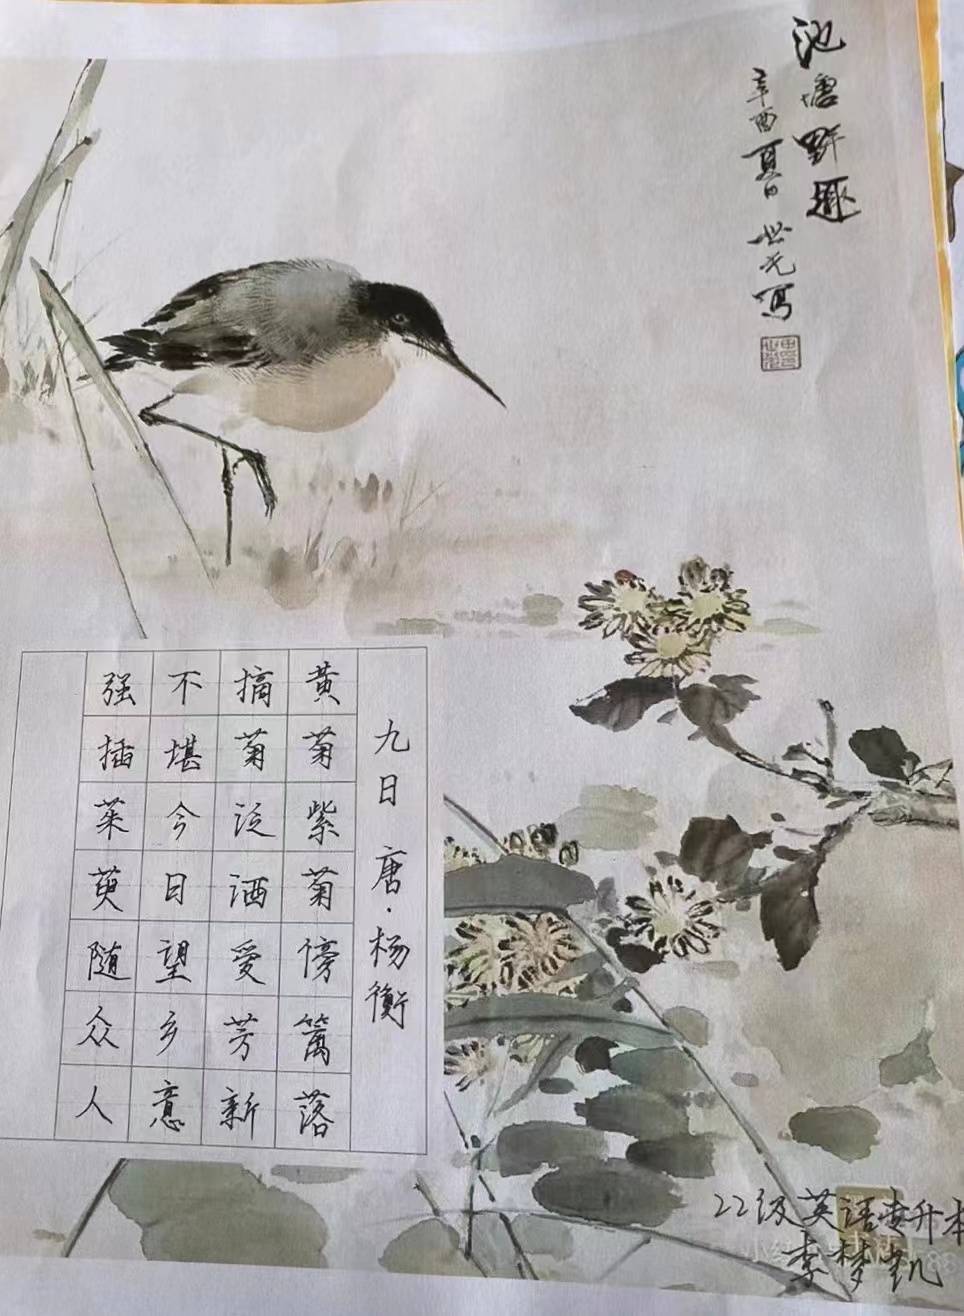 池塘野趣
辛酉夏日世光写
九日 唐·杨衡
黄菊紫菊傍篱落
摘菊泛酒爱芳新
不堪今日望乡意
强插茱萸随众人
22级英语专升本
李梦凯